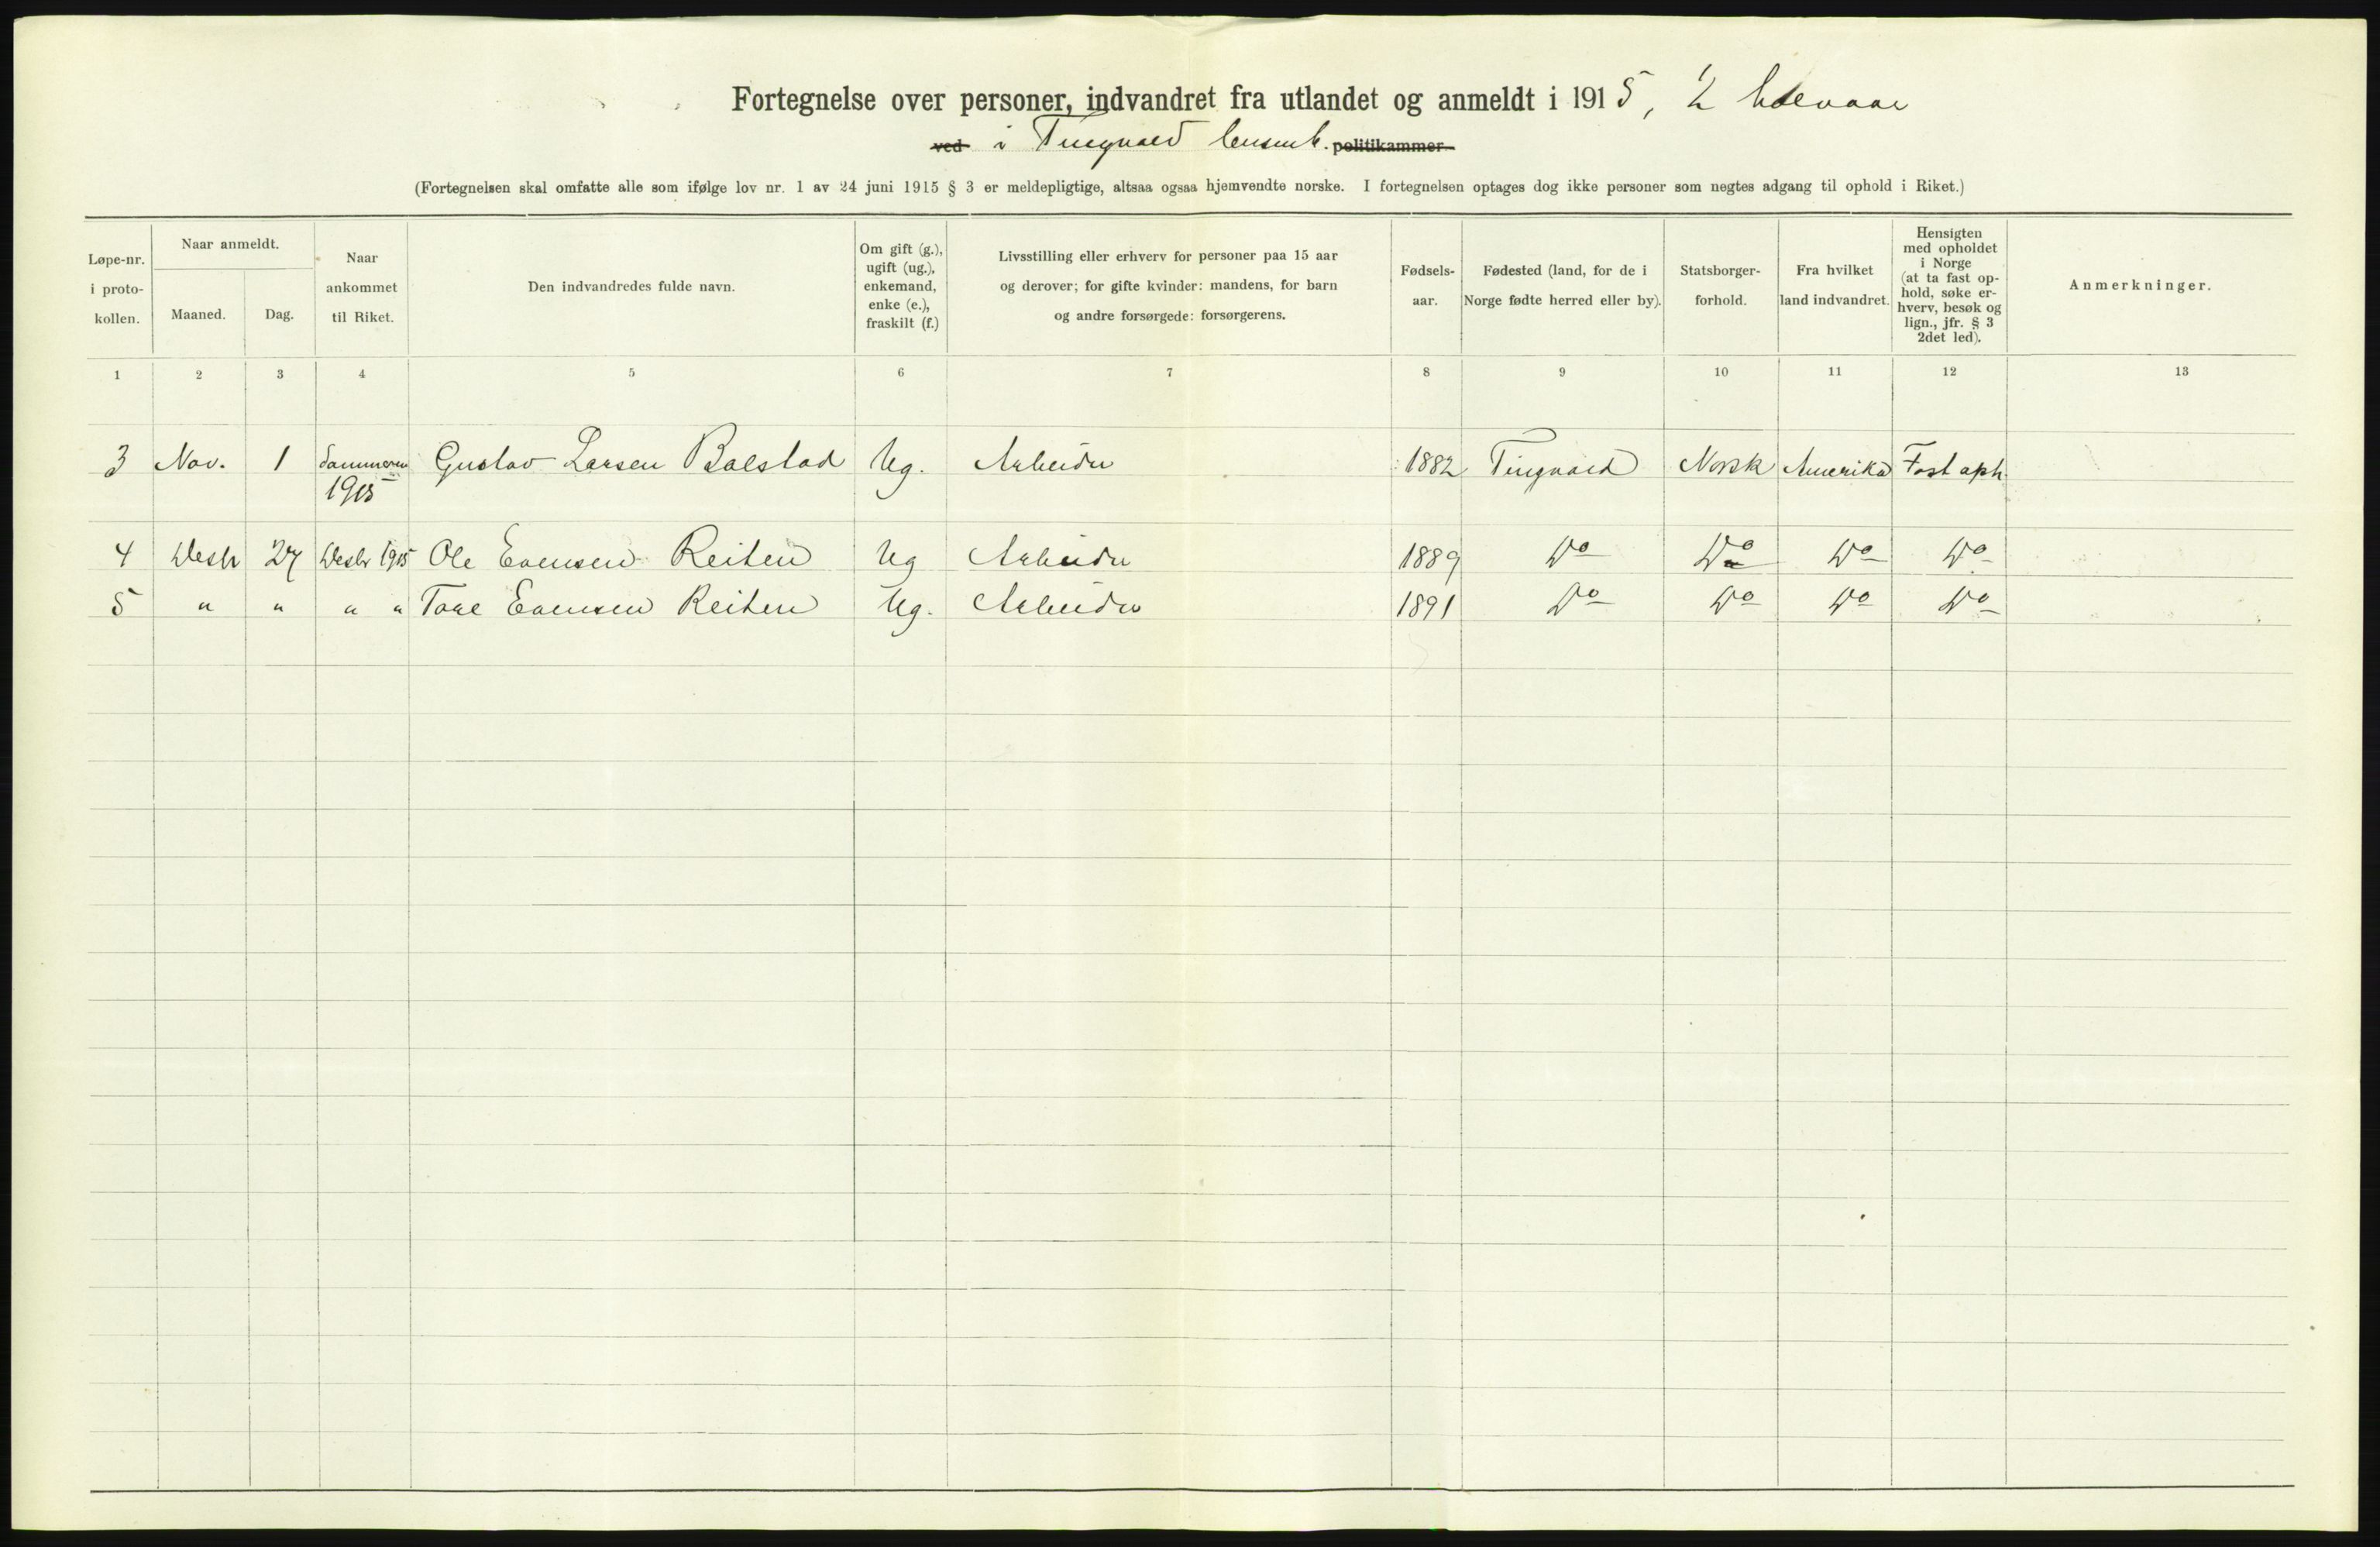 Fortegnelse over personer, indvandret fra utlandet og anmeldt i 1915, 2 halvaar
ved i Tingvold lensmk. politikammer
(Fortegnelsen skal omfatte alle som ifølge lov nr. 1 av 24 juni 1915 § 3 er meldepligtige, altsaa ogsaa hjemvendte norske. I fortegnelsen optages dog ikke personer som negtes adgang til ophold i Riket.)
Løpe-nr. i proto-kollen.
Naar anmeldt.
Maaned.
Dag.
Naar ankommet til Riket.
Den indvandredes fulde navn.
Om gift (g.), ugift (ug.), enkemand, enke (e.), fraskilt (f.)
Livsstilling eller erhverv for personer paa 15 aar og derover; for gifte kvinder: mandens, for barn og andre forsørgede: forsørgerens.
Fødsels-aar.
Fødested (land, for de i Norge fødte herred eller by).
Statsborger-forhold.
Fra hvilket land indvandret.
Hensigten med opholdet i Norge (at ta fast op-hold, søke er-hverv, besøk og lign., jfr. § 3 2det led).
Anmerkninger.
1 2 3 4 5 6 7 8 9 10 11 12 13
3 Nov. 1 Sommeren 1915 Gustav Larsen Bolstad Ug. Arbeider 1882 Tingvold Norsk Amerika Fast oph.
4 Desbr 27 Desbr 1915 Ole Evensen Reiten Ug Arbeider 1889 Do Do Do Do
5 " " " " Tore Evensen Reiten Ug. Arbeider 1891 Do Do Do Do